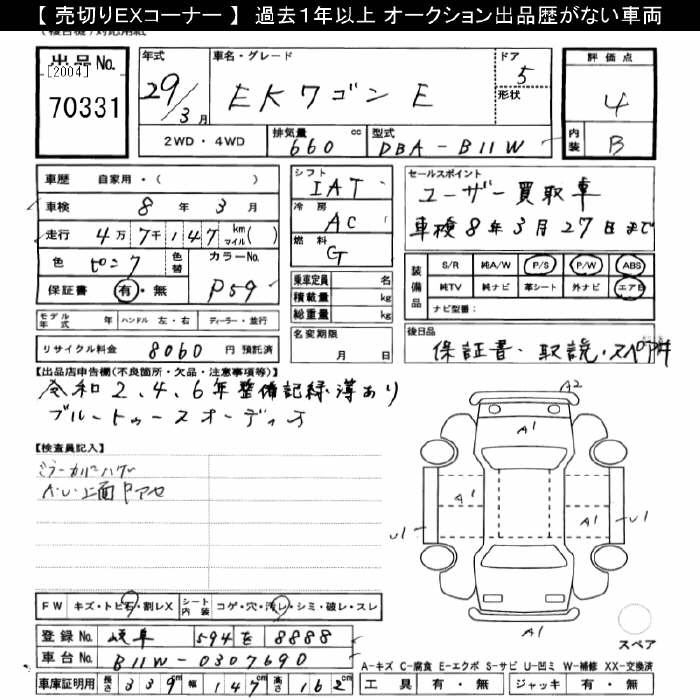 【 売切りEXコーナー 】 過去１年以上 オークション出品歴がない車両
出品No.
[2004]
70331
年式
29/3月
車名・グレード
EKワゴン E
ドア
5
形状
評価点
4
内装
B
2WD・4WD
排気量
660 cc
型式
DBA-B11W
車歴 自家用・( )
車検 8年3月
走行 4万7千147 km マイル( )
色 ピンク
色替
カラーNo.
P59
保証書 有・無
シフト
IAT
冷房
AC
燃料
G
セールスポイント
ユーザー買取車
車検8年3月27日まで
装備品
S/R 純A/W P/S P/W ABS
純TV 純ナビ 革シート 外ナビ エアB
ナビ型番:
乗車定員 名
積載量 kg
総重量 kg
モデル年式 年 ハンドル 左・右 ディーラー・並行
名変期限
月 日
リサイクル料金 8060 円 預託済
後日品
保証書・取説・スペア
【出品店申告欄(不良箇所・欠品・注意事項等)】
令和2、4、6年整備記録簿あり
ブルートゥースオーディオ
【検査員記入】
A・U・上面
A2
A1
A1
A1
U1
U1
A1
スペア
FW キズ・トビ石・割レX
シート内装 コゲ・穴・汚レ・シミ・破レ・スレ
登録No. 岐阜 594 を 8888
車台No. B11W-0307690
車庫証明用 長さ 339 cm 幅 147 cm 高さ 162 cm
A-キズ C-腐食 E-エクボ S-サビ U-凹ミ W-補修 XX-交換済
工具 有・無 ジャッキ 有・無